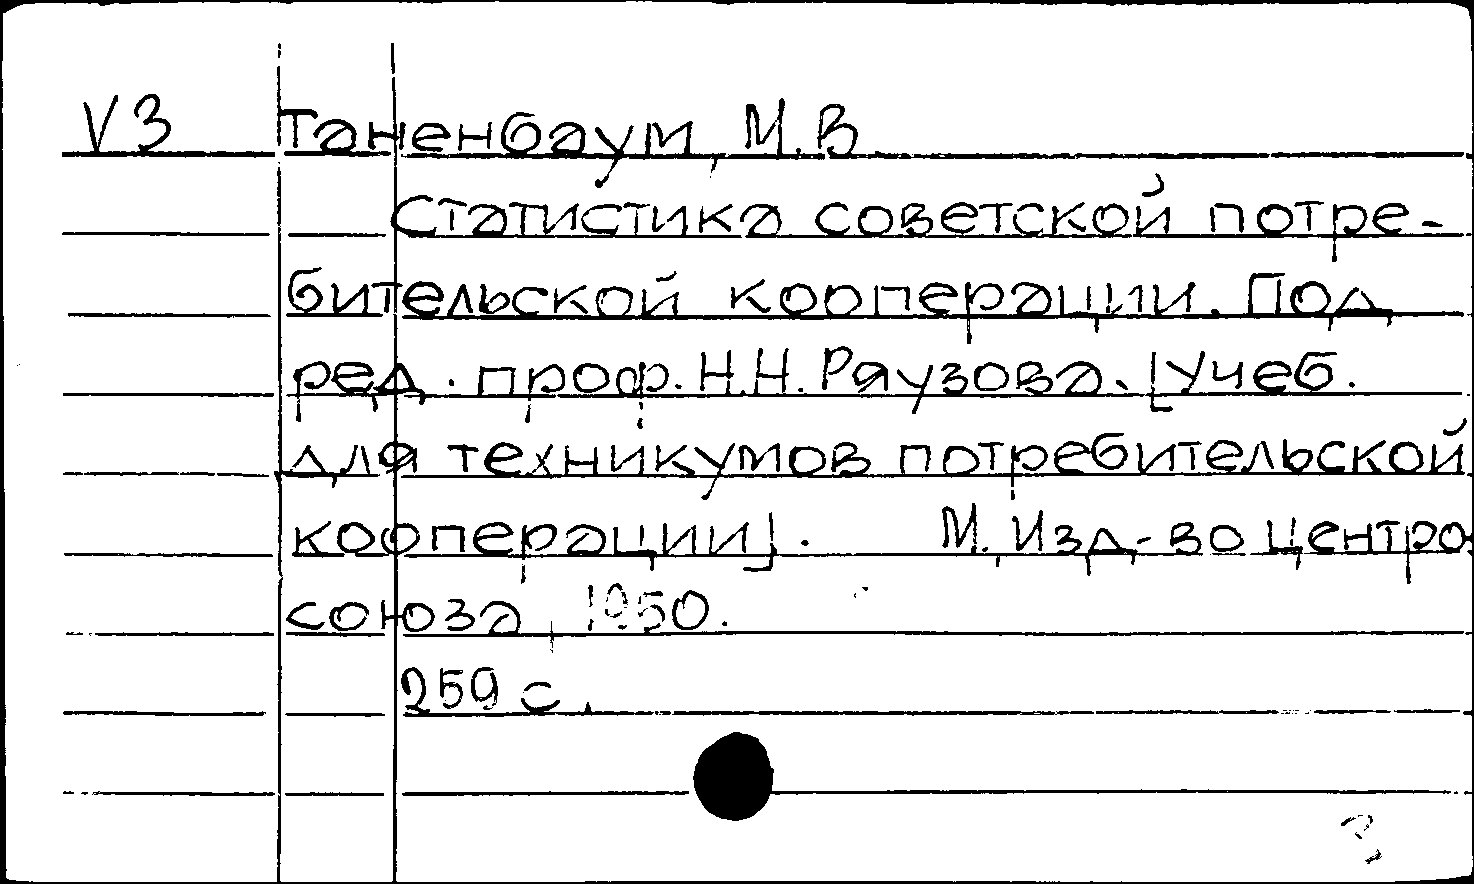 V3 Таненбаум, М.В.
Статистика советской потре-
бительской кооперации. Под
ред. проф. Н.Н. Ряузова. [Учеб.
для техникумов потребительской
кооперации]. М., Изд-во Центро-
союза, 1950.
259 с.